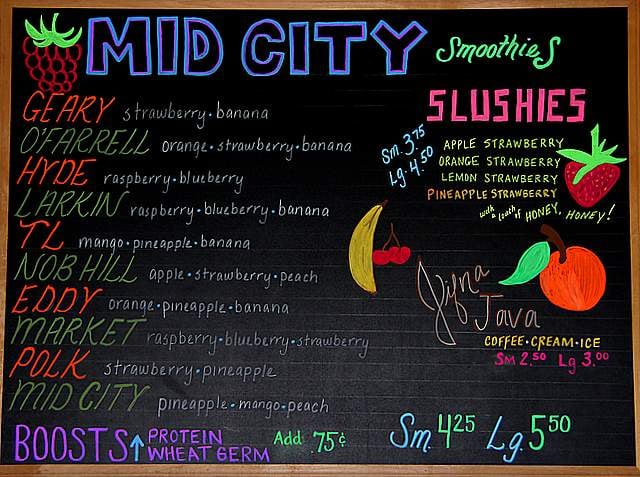 MID CITY Smoothies
GEARY strawberry•banana
O'FARRELL orange•strawberry•banana
HYDE raspberry•blueberry
LARKIN raspberry•blueberry•banana
TL mango•pineapple•banana
NOB HILL apple•strawberry•peach
EDDY orange•pineapple•banana
MARKET raspberry•blueberry•strawberry
POLK strawberry•pineapple
MID CITY pineapple•mango•peach
BOOSTS↑ PROTEIN
WHEAT GERM
Add .75¢
Sm. 4.25 Lg. 5.50
SLUSHIES
Sm. 3.75
Lg. 4.50
APPLE STRAWBERRY
ORANGE STRAWBERRY
LEMON STRAWBERRY
PINEAPPLE STRAWBERRY
with a touch of HONEY, HONEY!
Java
COFFEE•CREAM•ICE
Sm 2.50 Lg 3.00